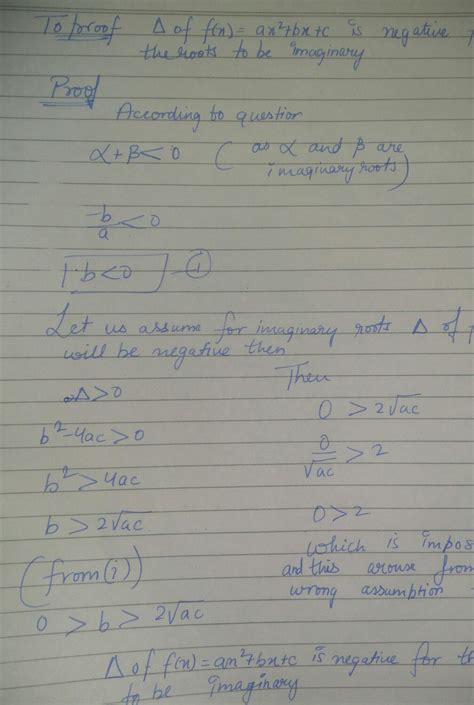 To proof Δ of f(x) = ax²+bx+c is negative
the roots to be imaginary
Proof
According to question
α+β<0 (as α and β are
imaginary roots)
-b/a <0
b<0 (i)
Let us assume for imaginary roots Δ of
will be negative then
Δ>0
b²-4ac>0
b²>4ac
b>2√ac
(from(i))
0 > b > 2√ac
Then
0 > 2√ac
0/√ac > 2
0>2
which is impos
and this arouse from
wrong assumption
Δ of f(x) = ax²+bx+c is negative for th
to be imaginary